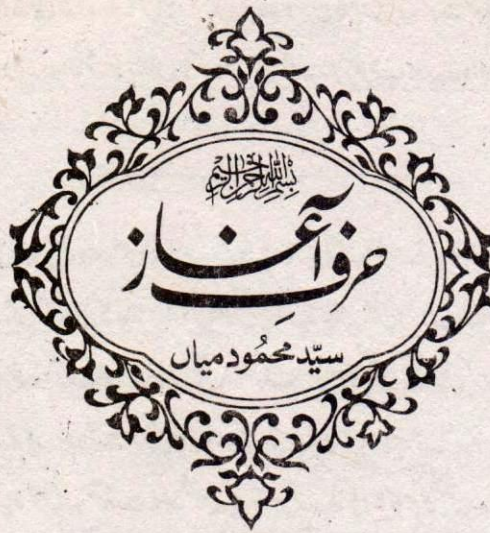 بسم اللہ الرحمن الرحیم
حرفِ آغاز
سیّد محمُود میاں